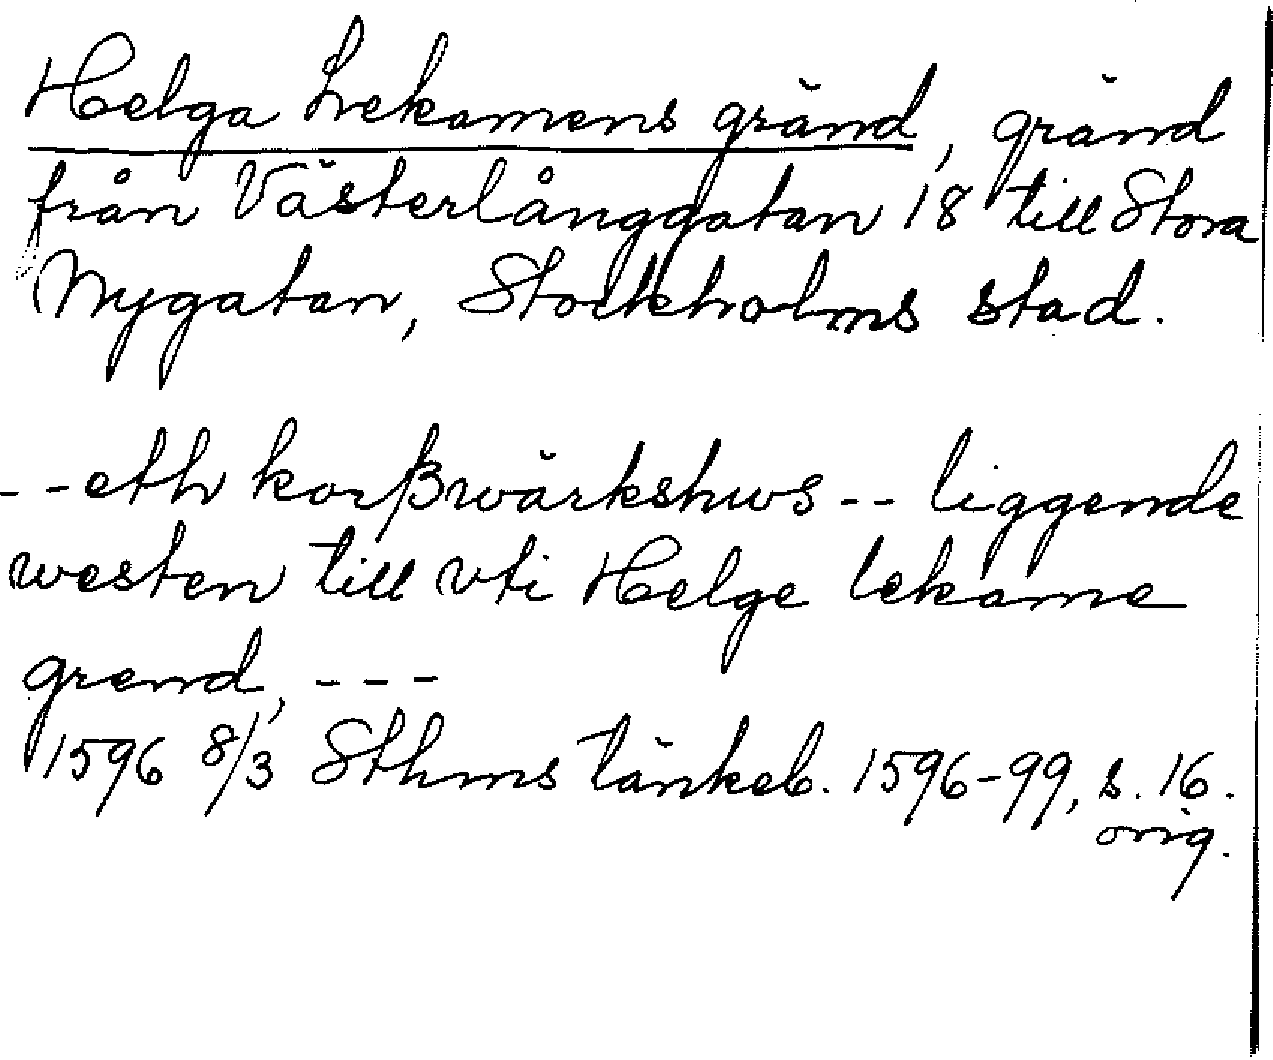 Helga Lekamens gränd, gränd
från Västerlånggatan 18 till Stora
Nygatan, Stockholms stad.
-- eth korßwärkshws -- liggende
westen till vti Helge lekame
grend, ---
1596 8/3 Sthms tänkeb. 1596-99, s. 16.
orig.